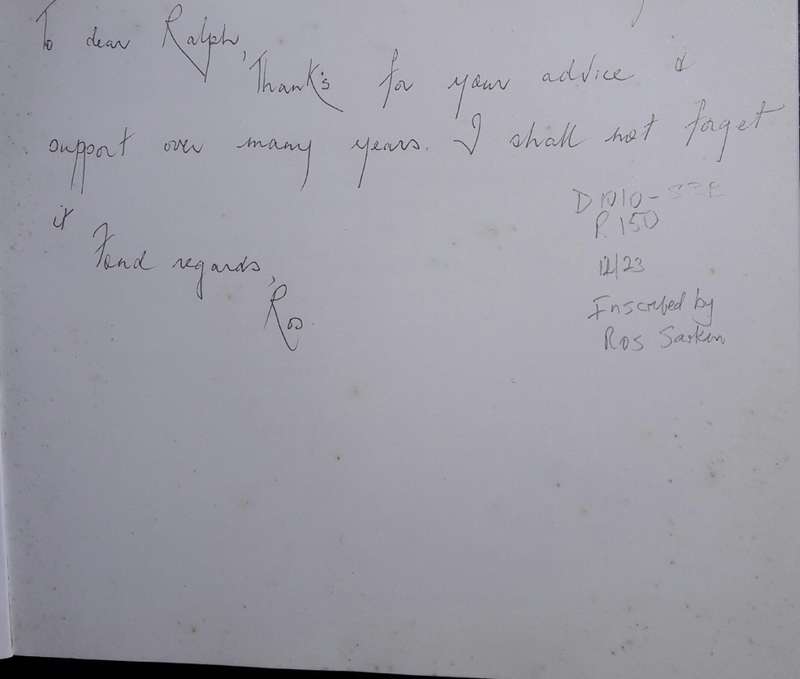 To dear Ralph,
Thanks for your advice &
support over many years. I shall not forget
it
Fond regards,
Ros
D1010-
R150
12/23
Inscribed by
Ros Sarkin